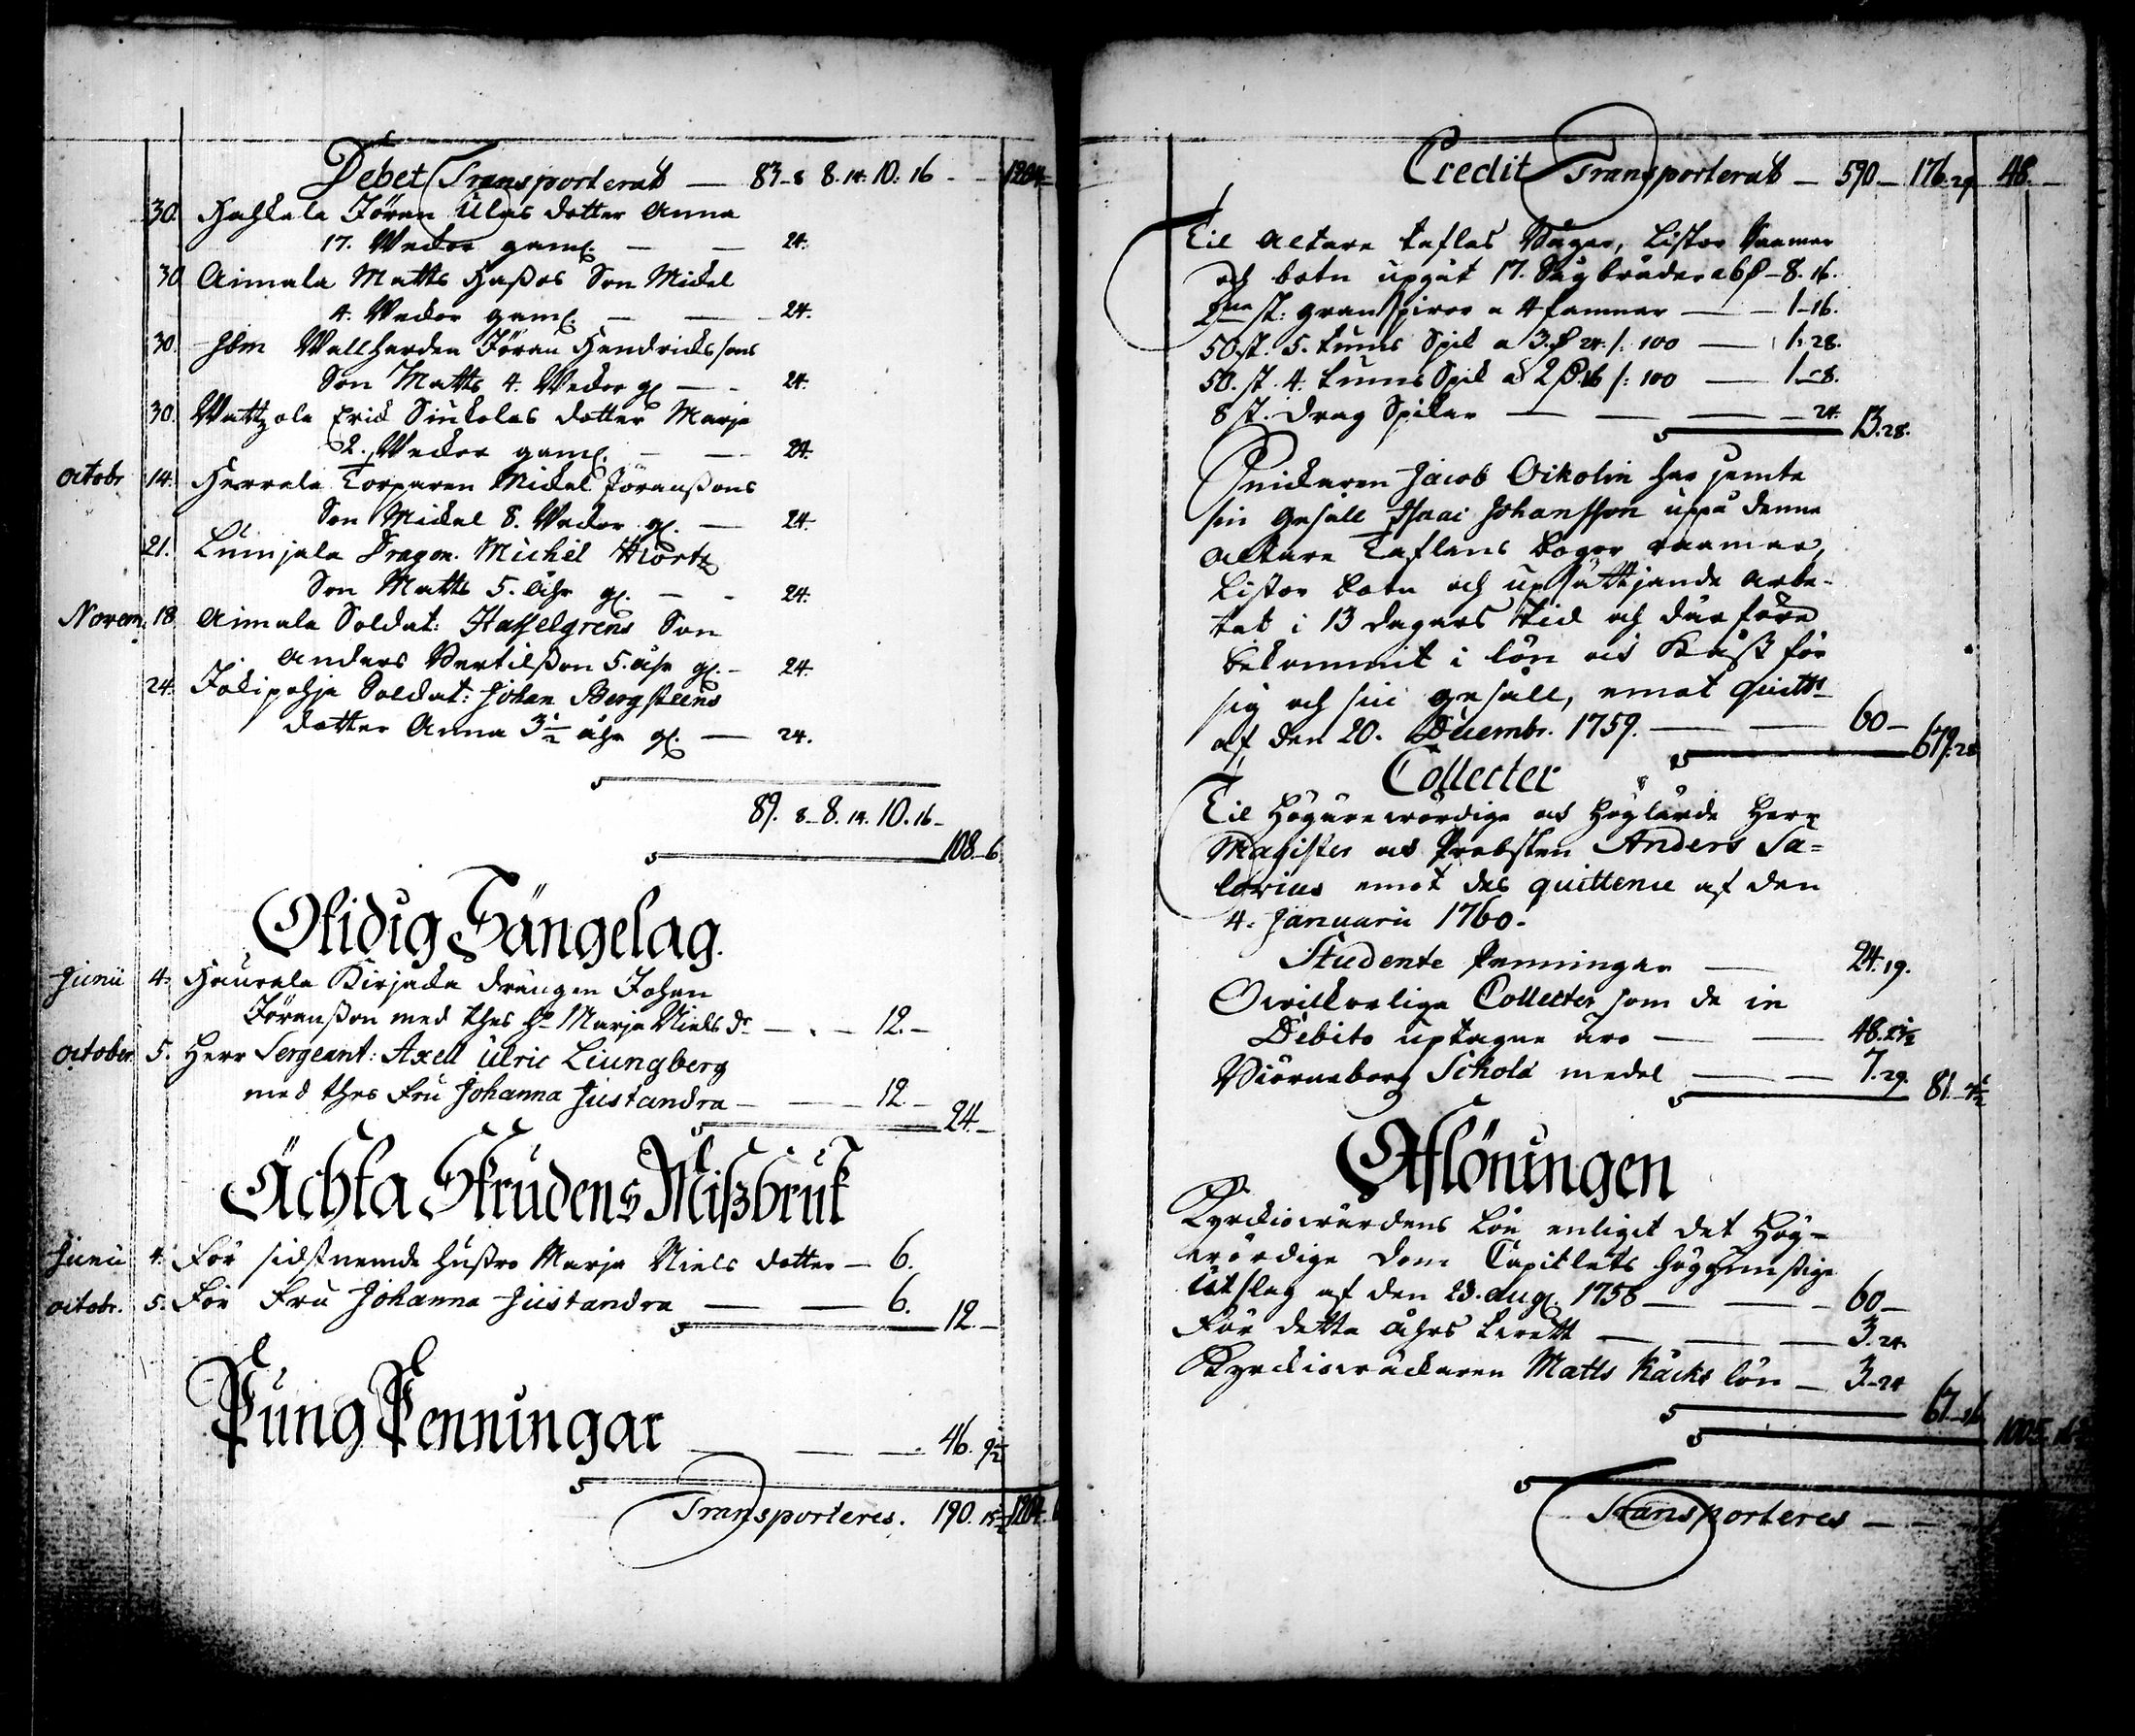 Debet Transporterat — 83-8 8.14. 10:16 - - 1204-
30. Jöran Ulas dotter Anna
17. Wekor gaml. — — 24.
30 Aimala Matts Son Mickel
4. Wekor gaml. — — 24.
30. Ibm Jöran Hendrickssons
Son Matts 4. Wekor gl. — - 24.
30. Erick Sinkolas dotter Marja
2. Wekor gaml. — — 24.
octobr. 14. Torparen Mickel Göranßons
Son Mickel 8. Wekor gl. — 24.
21. Lumjala Dragon. Michel Hiort
Son Matts 5. åhr gl. — - 24.
Novem. 18 Aimala Soldat: Hasselgrens Son
Anders Bertilßon 5. åhr gl. - 24.
24. Jokipohja Soldat: Johan Bergsteens
dotter Anna 3½ åhr gl. — 24.
89. 8-8. 14. 10. 16-
108-6.
Otidig Sängelag.
Junii 4. Haurala Kirjada drängen Johan
Jöranßon med thes h. Marja Niels dr — - — 12.-
October 5. Herr Sergeant: Axell Ulric Liungberg
med thes Fru Johanna Justandra — — 12. —
24.—
Ächta Skrudens Mißbruk
Junii 4. För sidstnemde hustro Marja Niels dotter — 6.
octobr. 5. För Fru Johanna Justandra — — 6.
12.—
Pung Penningar — — — 46. 9½
Transporteres. 190. 15½ 1204.
Credit Transporterat — 590 — 176.29 48.—
Til Altare taflas Bågar, Listor Raamar
och botn upgåt 17. Sågbräder a 6 — 8. 16.
st: granspiror a 4 famnar — — 1-16.
50 st. 5. tums Spik a 3. 24. /: 100 — 1.28.
50. st. 4. tums Spik a 2 16 /: 100 — 1-8.
8 st. drag Spikar — — — 24.
13.28.
Snickaren Jacob Oikolin har jemte
sin gesäll Isaac Johansson uppå denna
Altare Taflans bogor raamar,
Listor botn och upsättjande arbe-
tat i 13 dagars tid och därföre
bekommit i lön och Kåst för
sig och sin gesäll, emot quitts
af den 20. Decembr. 1759. — — 60 —
679.28
Collecter
Til Högärewördige och Höglärde Herr
Magister och Probsten Anders Sa=
lovius emot des quittence af den
4. Januarii 1760.
Studente Penningar — 24.19.
Owilkorliga Collecter som de in
Debito uptagne äro — — 48.
Biörneborg Schola medel — — 7.29.
81.
Aflöningen
Kyrckiowärdens Lön enligit det Hög-
wördige Dom Capitlets höggunstige
Utslag af den 23. aug. 1756 — — - 60 —
För detta åhrs — — — 3.24.
Kyrckiowäckaren Matts Käcks lön — 3.-24
67-16
1005.
Transporteres — — -